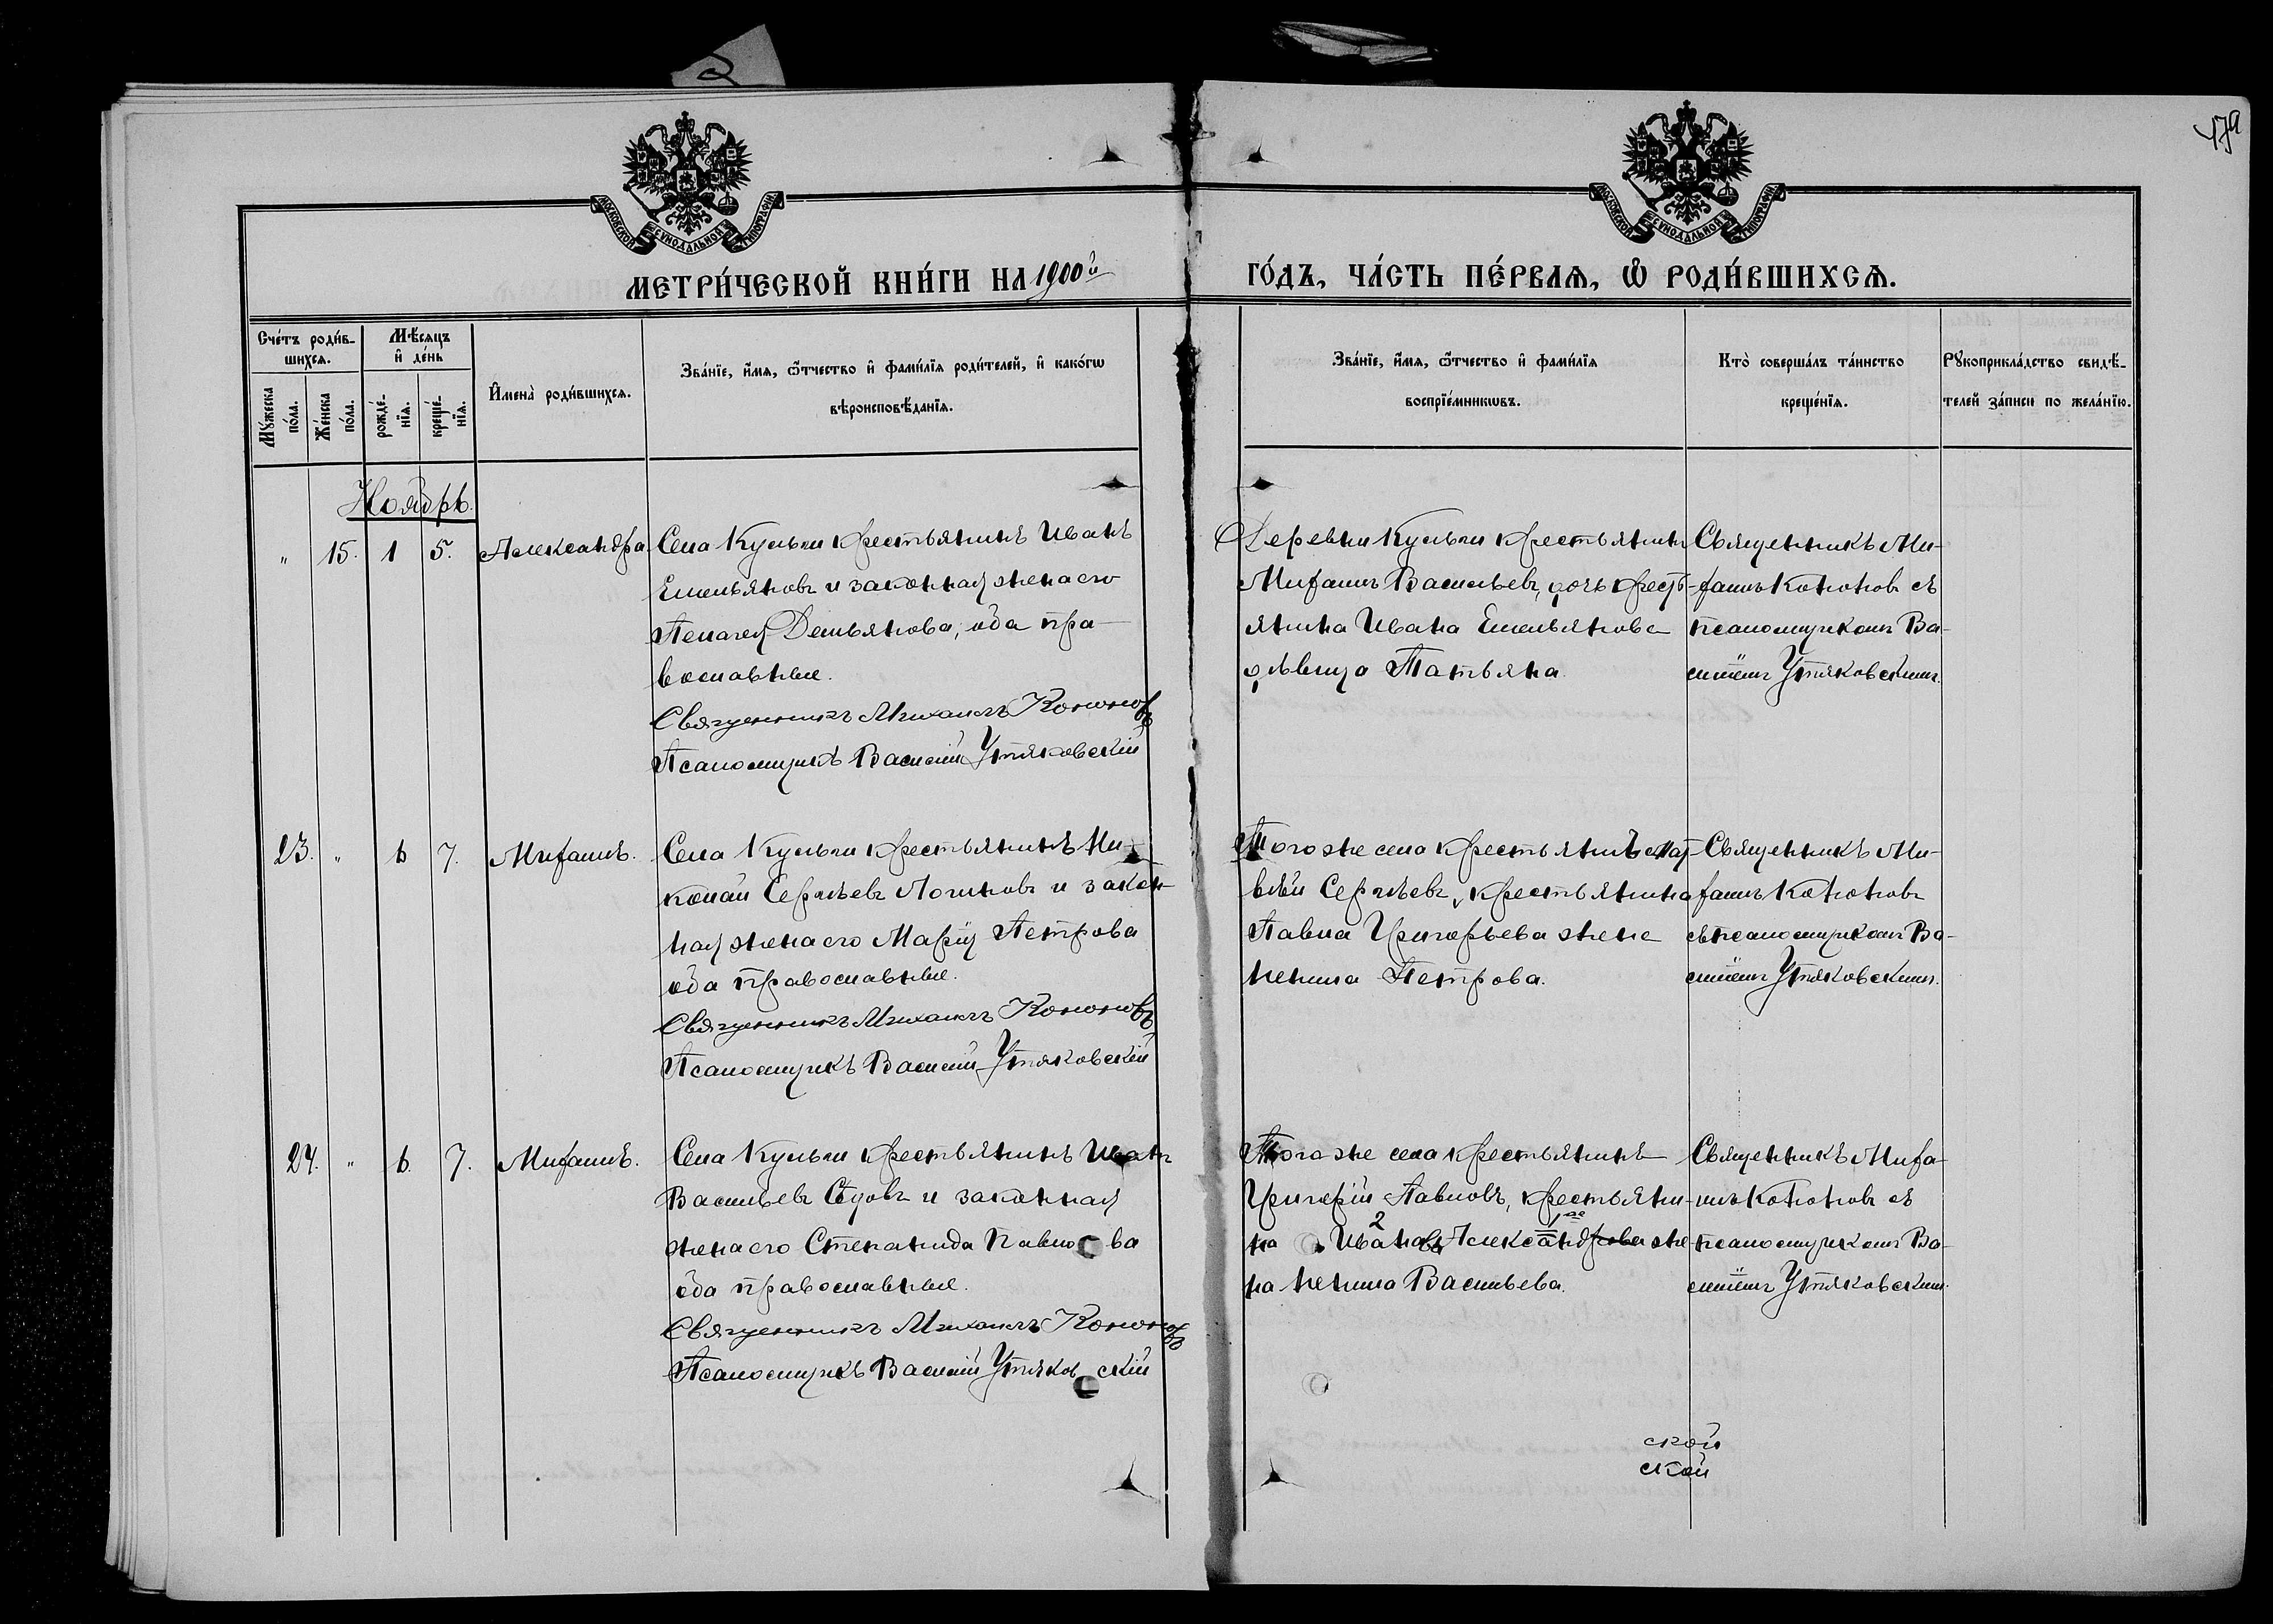 179
МОСКОВСКОЙ СѴНОДАЛЬНОЙ ТИПОГРАФІИ
МОСКОВСКОЙ СѴНОДАЛЬНОЙ ТИПОГРАФІИ
МЕТРИ́ЧЕСКОЙ КНИ́ГИ НА 1900й ГО́ДЪ, ЧА́СТЬ ПЕ́РВАѦ, Ѡ РОДИ́ВШИХСѦ.
Сче́тъ роди́в-
шихсѧ.
Мѣ́сѧцъ
и҆ де́нь
Мꙋ́жеска
по́ла.
Же́нска
по́ла.
рожде́-
нїѧ.
креще́-
нїѧ.
И҆мена̀ роди́вшихсѧ.
Зва́нїе, и҆́мѧ, ѻ҆́тчество и҆ фами́лїѧ роди́телей, и҆ како́гѡ
вѣроисповѣ́данїѧ.
Зва́нїе, и҆́мѧ, ѻ҆́тчество и҆ фами́лїѧ
воспрїе́мникѡвъ.
Кто̀ соверша́лъ та́инство
креще́нїѧ.
Рꙋкоприкла́дство свидѣ́-
телей за́писи по жела́нїю.
Ноябрь.
" 15. 1 5. Александра
Села Кульги крестьянинъ Иванъ
Емельяновъ и законная жена его
Пелагея Демьянова, оба пра-
вославные.
Священникъ Михаилъ Кононовъ
Псаломщикъ Василій Утяковскій
Деревни Кульги крестьянинъ
Михаилъ Васильевъ, дочь кресть-
янина Ивана Емельянова
дѣвица Татьяна.
Священникъ Ми-
хаилъ Кононовъ съ
псаломщикомъ Ва-
силіемъ Утяковскимъ.
23. " 6 7. Михаилъ.
Села Кульги крестьянинъ Ни-
колай Сергѣевъ Логиновъ и закон-
ная жена его Марія Петрова
оба православные.
Священникъ Михаилъ Кононовъ
Псаломщикъ Василій Утяковскій
Того же села крестьянинъ Мат-
вѣй Сергѣевъ, крестьянина
Павла Григорьева жена
Ненила Петрова.
Священникъ Ми-
хаилъ Кононовъ
съ псаломщикомъ Ва-
силіемъ Утяковскимъ.
24. " 6. 7. Михаилъ.
Села Кульги крестьянинъ Иванъ
Васильевъ Сѣдовъ и законная
жена его Степанида Павлова
оба православные.
Священникъ Михаилъ Кононовъ
Псаломщикъ Василій Утяковскій
Того же села крестьянинъ
Григорій Павловъ, крестьяни-
на Александрова же-
на Ненила Васильева.
Священникъ Миха-
илъ Кононовъ съ
псаломщикомъ Ва-
силіемъ Утяковскимъ.
ской
ской